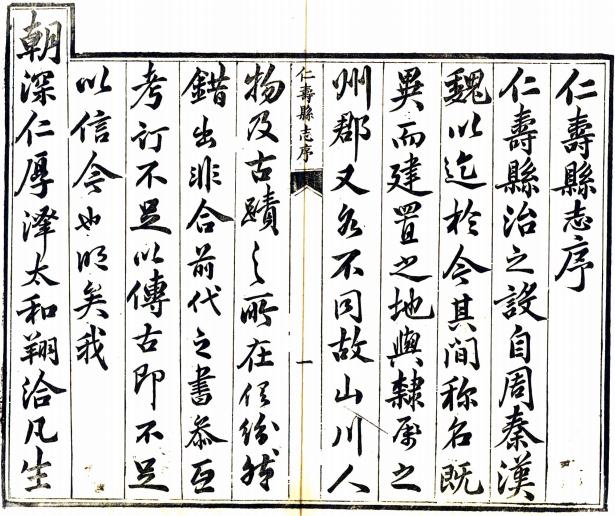 仁壽縣志序
仁壽縣治之設自周秦漢
魏以迄於今其間称名既
異而建置之地與隸屬之
州郡又各不同故山川人
仁壽縣志序
一
物及古蹟之所在俱紛然
錯出非合前代之書叅互
考訂不足以傳古即不足
以信今也明矣我
朝深仁厚澤太和翔洽凡生